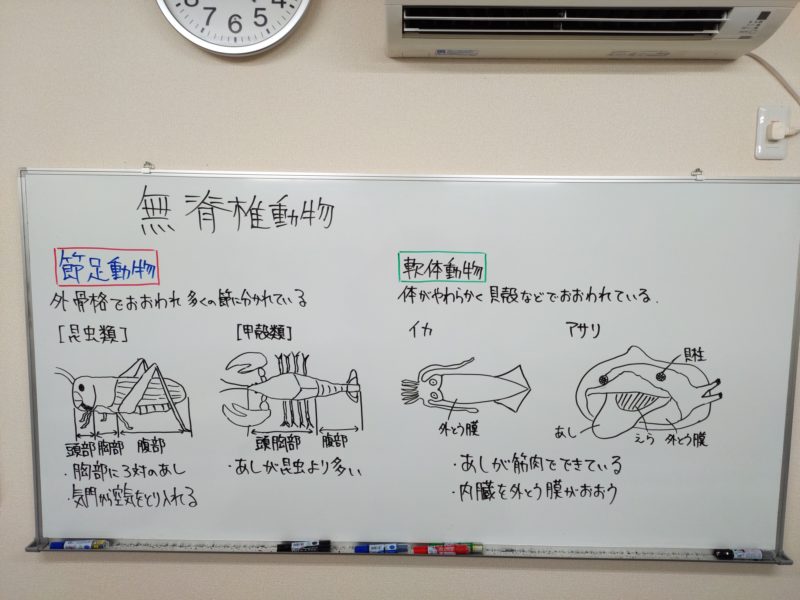 8 7 6 5 4
無脊椎動物
節足動物
外骨格でおおわれ多くの節に分かれている
[昆虫類]
頭部 胸部 腹部
・胸部に3対のあし
・気門から空気をとり入れる
[甲殻類]
頭胸部 腹部
・あしが昆虫より多い
軟体動物
体がやわらかく貝殻などでおおわれている.
イカ
外とう膜
アサリ
貝柱
あし えら 外とう膜
・あしが筋肉でできている
・内臓を外とう膜がおおう